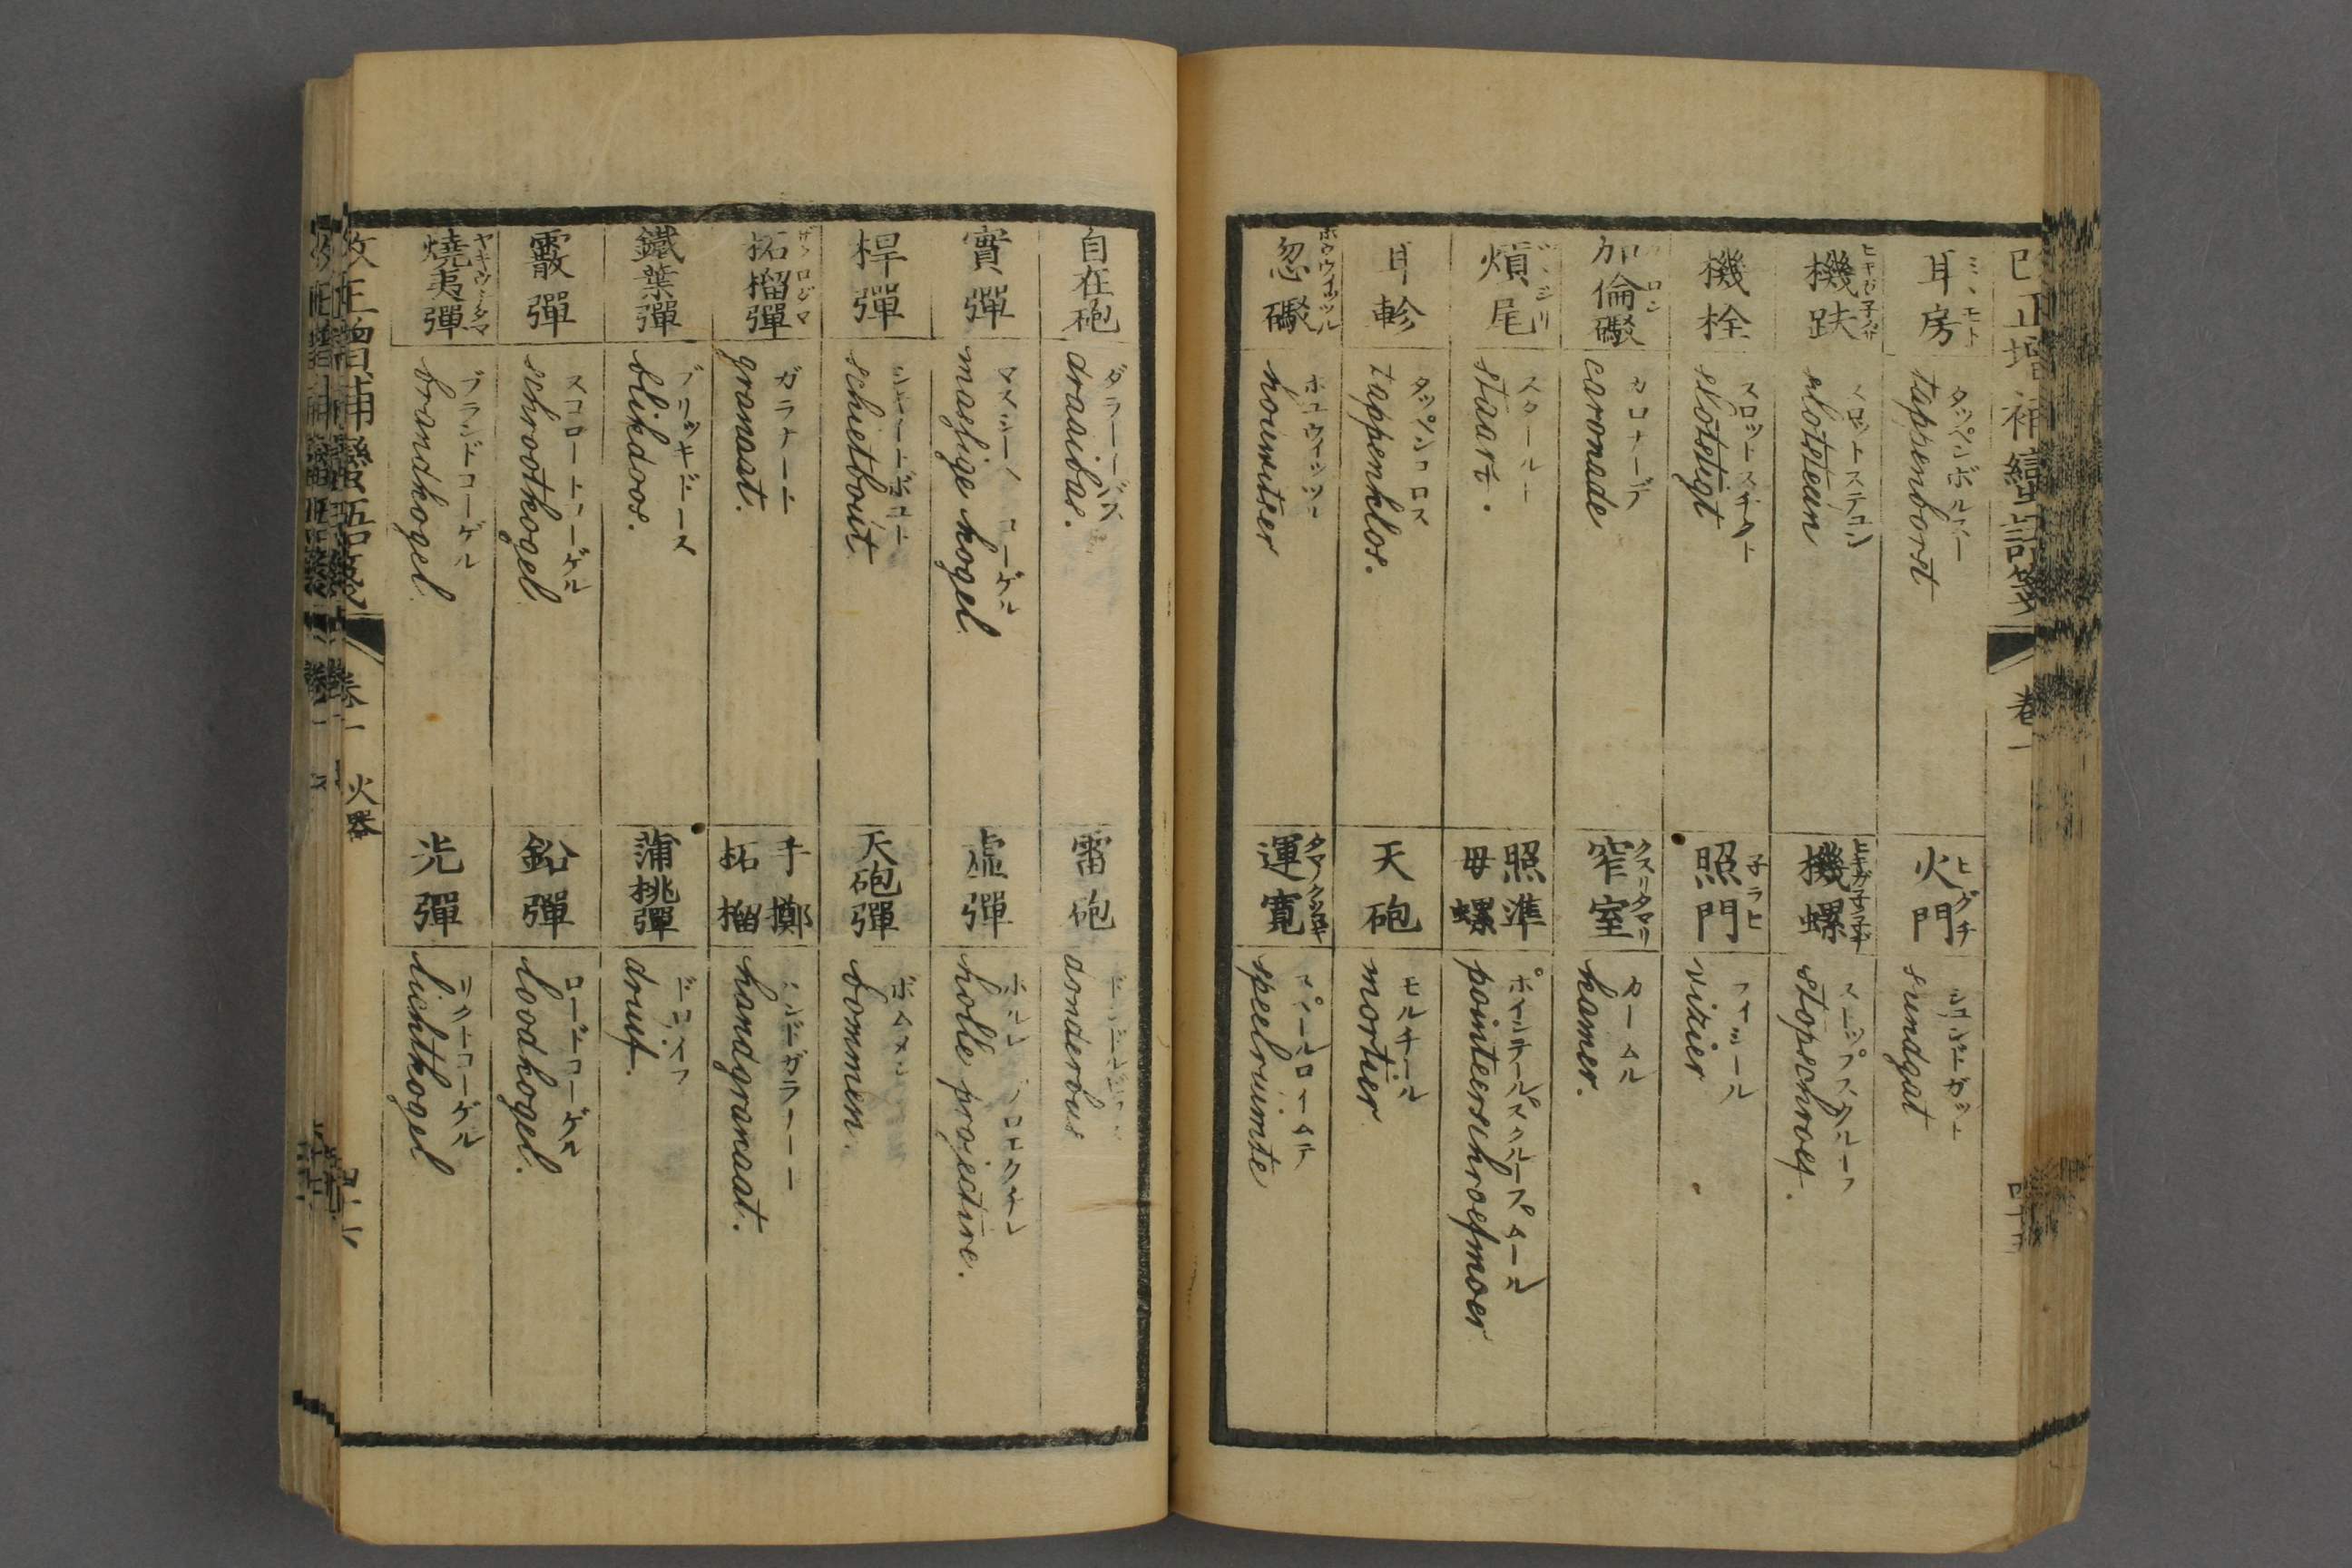 改正増補蠻語箋 卷一
耳房 ミヽモト
タッペンボルスー
tappenborst
火門 ヒグチ
シュンドガット
sundgat
機趺
スロットステユン
slotsteun
機螺
ストップスクルーフ
stopschroef.
機栓
スロットスチクト
slotstigt
照門 子ラヒ
フィシール
vizier
加倫礮
カロナーデ
caronade
窄室 クスリダマリ
カームル
kamer.
煩尾
スタールト
staart.
照準母螺
ポインテールスクルースムール
pointeerschroefmoer
耳軫
タッペンコロス
tappenklos.
天砲
モルチール
mortier
忽礮 ホウウイッツル
ホュウイッツル
houwitser
運寛
スペールロイムテ
speelruimte
自在砲
ダラーイバス
draaibas.
雷砲
donderbus
實彈
マッシーゲ コーゲル
masfige kogel.
虚彈
ホルレ プロエクチレ
holle projectire.
桿彈
シキートボユト
schietbout
天砲彈
ボムメン
bommen.
柘榴彈 ザクロダマ
ガラナート
granaat.
手擲柘榴
ハンドガラナート
handgranaat.
鐵葉彈
ブリッキドース
blikdoos.
蒲桃彈
ドロイフ
druif.
霰彈
スコロートコーゲル
schrootkogel
鉛彈
ロードコーゲル
loodkogel.
燒夷彈 ヤキウチダマ
ブランドコーゲル
brandkogel.
光彈
リクトコーゲル
lichtkogel
改正増補蠻語箋 卷一 火器